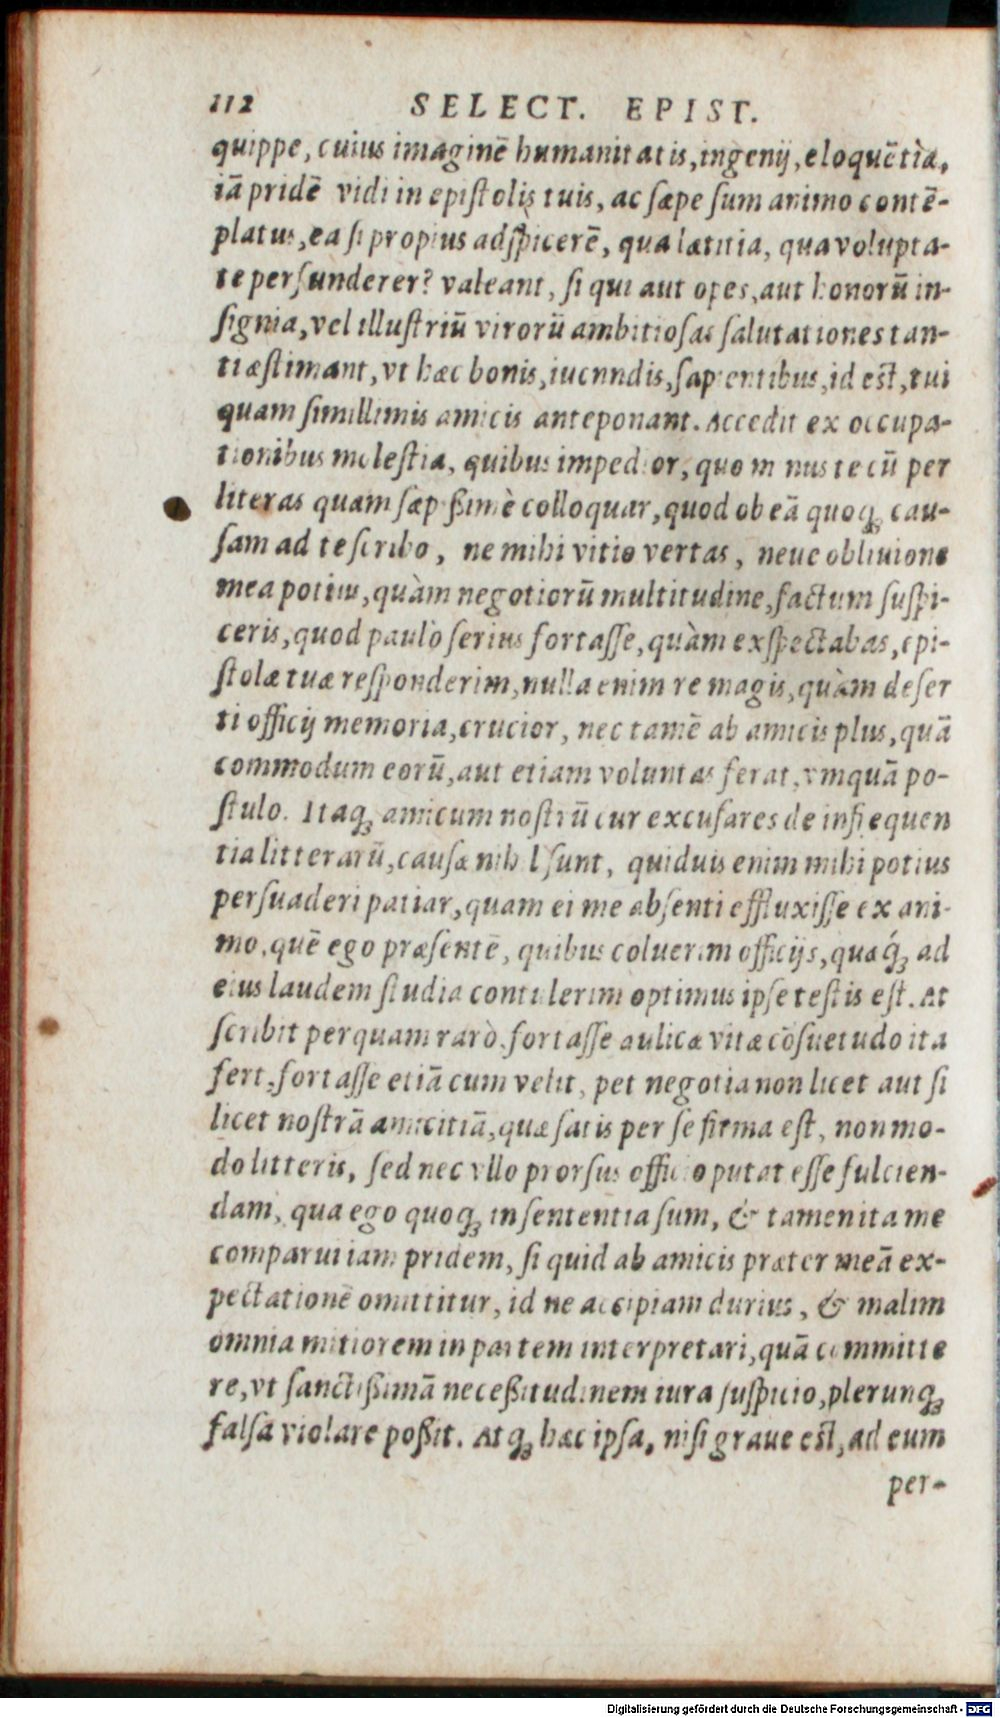 112 SELECT. EPIST.
quippe, cuius imaginē humanitatis, ingenij, eloquētia,
iā pridē vidi in epistolis tuis, ac sæpe sum animo contē-
platus, ea si propius adspicerē, qua lætitia, qua volupta-
te persunderer? valeant, si qui aut opes, aut honorū in-
signia, vel illustriū virorū ambitiosas salutationes tan-
ti æstimant, vt hæc bonis, iucnndis, sapientibus, id est, tui
quam simillimis amicis anteponant. Accedit ex occupa-
tionibus molestia, quibus impedior, quo minus te cū per
literas quam sæpißimè colloquar, quod ob eā quoq; cau-
sam ad te scribo, ne mihi vitio vertas, neue obliuione
mea potius, quàm negotiorū multitudine, factum suspi-
ceris, quod paulò serius fortasse, quàm exspectabas, epi-
stolæ tuæ responderim, nulla enim re magis, quàm deser
ti officij memoria, crucior, nec tamē ab amicis plus, quā
commodum eorū, aut etiam voluntas ferat, vmquā po-
stulo. Itaq; amicum nostrū cur excusares de infrequen
tia litterarū, causæ nihil sunt, quiduis enim mihi potius
persuaderi patiar, quam ei me absenti effluxisse ex ani-
mo, quē ego præsentē, quibus coluerim officijs, quæq́; ad
eius laudem studia contulerim optimus ipse testis est. At
scribit perquam rarò. fortasse aulicæ vitæ cōsuetudo ita
fert, fortasse etiā cum velit, pet negotia non licet aut si
licet nostrā amicitiā, quæ satis per se firma est, non mo-
do litteris, sed nec vllo prorsus officio putat esse fulcien-
dam, qua ego quoq; in sententia sum, & tamen ita me
comparui iam pridem, si quid ab amicis præter meā ex-
pectationē omittitur, id ne accipiam durius, & malim
omnia mitiorem in partem interpretari, quā committe
re, vt sanctißimā neceßitudinem iura suspicio, plerunq;
falsa violare poßit. Atq; hæc ipsa, nisi graue est, ad eum
per-
Digitalisierung gefördert durch die Deutsche Forschungsgemeinschaft - DFG